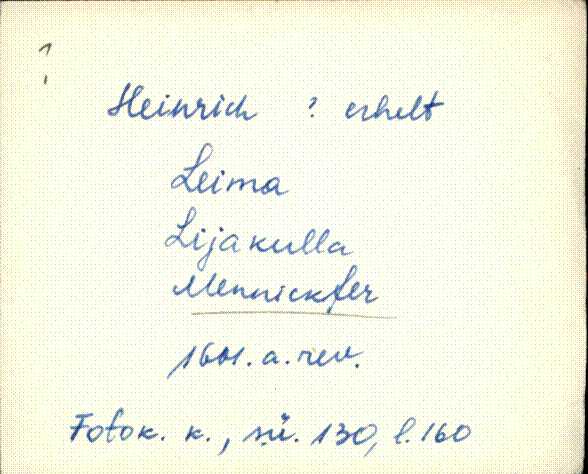 ?
Heinrich ? erhelt
Leima
Lijakulla
Mennickfer
1601. a. rev.
Fotok. k., sü. 130, l. 160